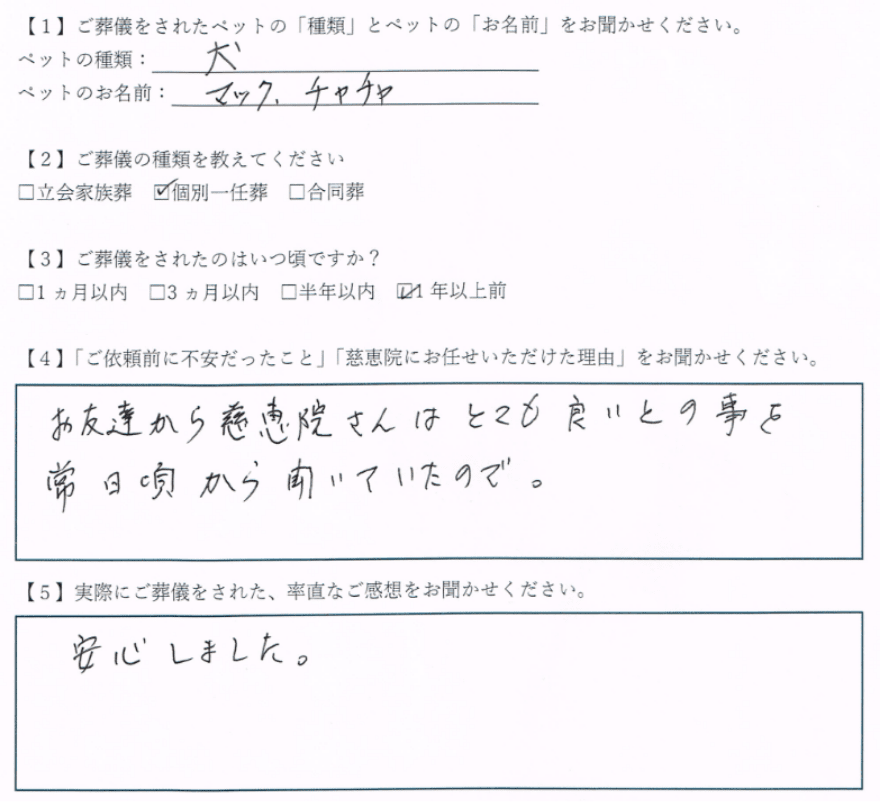 【1】ご葬儀をされたペットの「種類」とペットの「お名前」をお聞かせください。
ペットの種類：犬
ペットのお名前：マック、チャチャ
【2】ご葬儀の種類を教えてください
□立会家族葬　☑個別一任葬　□合同葬
【3】ご葬儀をされたのはいつ頃ですか？
□1ヵ月以内　□3ヵ月以内　□半年以内　☑1年以上前
【4】「ご依頼前に不安だったこと」「慈恵院にお任せいただけた理由」をお聞かせください。
お友達から慈恵院さんはとても良いとの事を
常日頃から聞いていたので。
【5】実際にご葬儀をされた、率直なご感想をお聞かせください。
安心しました。